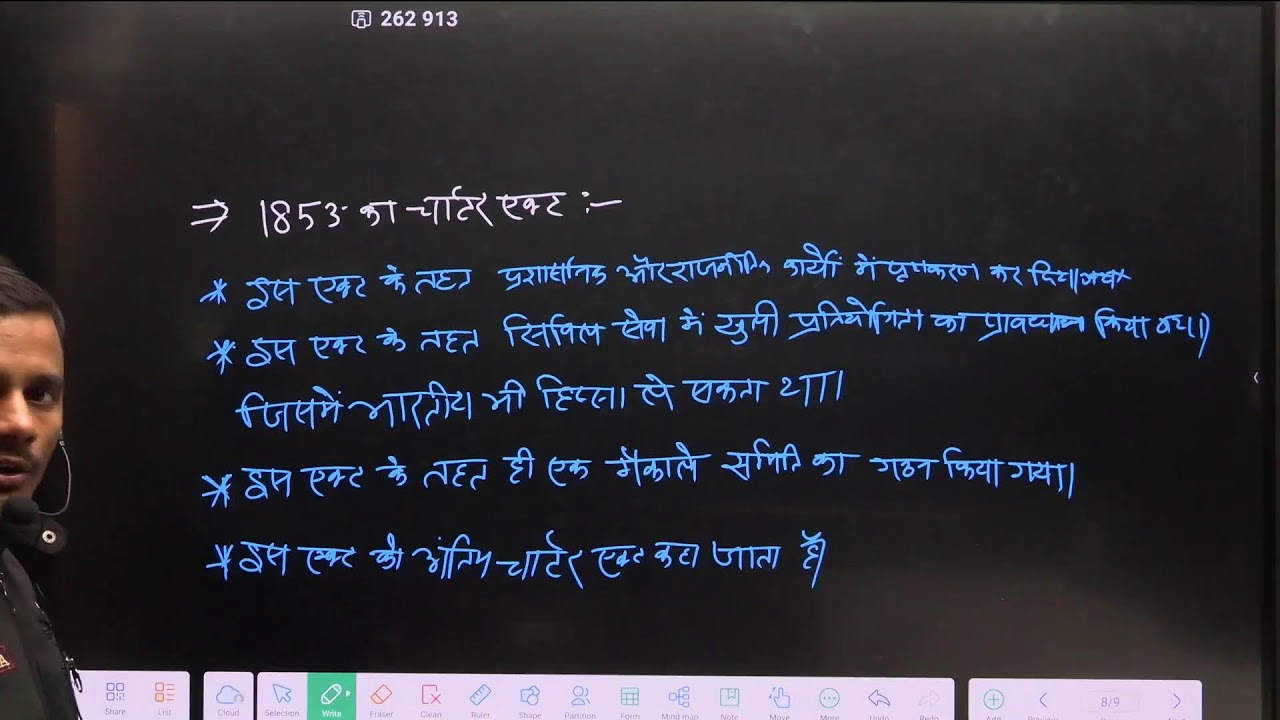 262 913
⇒ 1853 का चार्टर एक्ट :-
* इस एक्ट के तहत प्रशासनिक और राजनीतिक कार्यों में पृथकरण कर दिया गया
* इस एक्ट के तहत सिविल सेवा में खुली प्रतियोगिता का प्रावधान किया गया।
जिसमें भारतीय भी हिस्सा ले सकता था।
* इस एक्ट के तहत ही एक मैकाले समिति का गठन किया गया।
* इस एक्ट को अंतिम चार्टर एक्ट कहा जाता है।
Share List Cloud Selection Write Eraser Clean Ruler Shape Partition Form Mind map Note Move More Undo Redo Add Previous 8/9